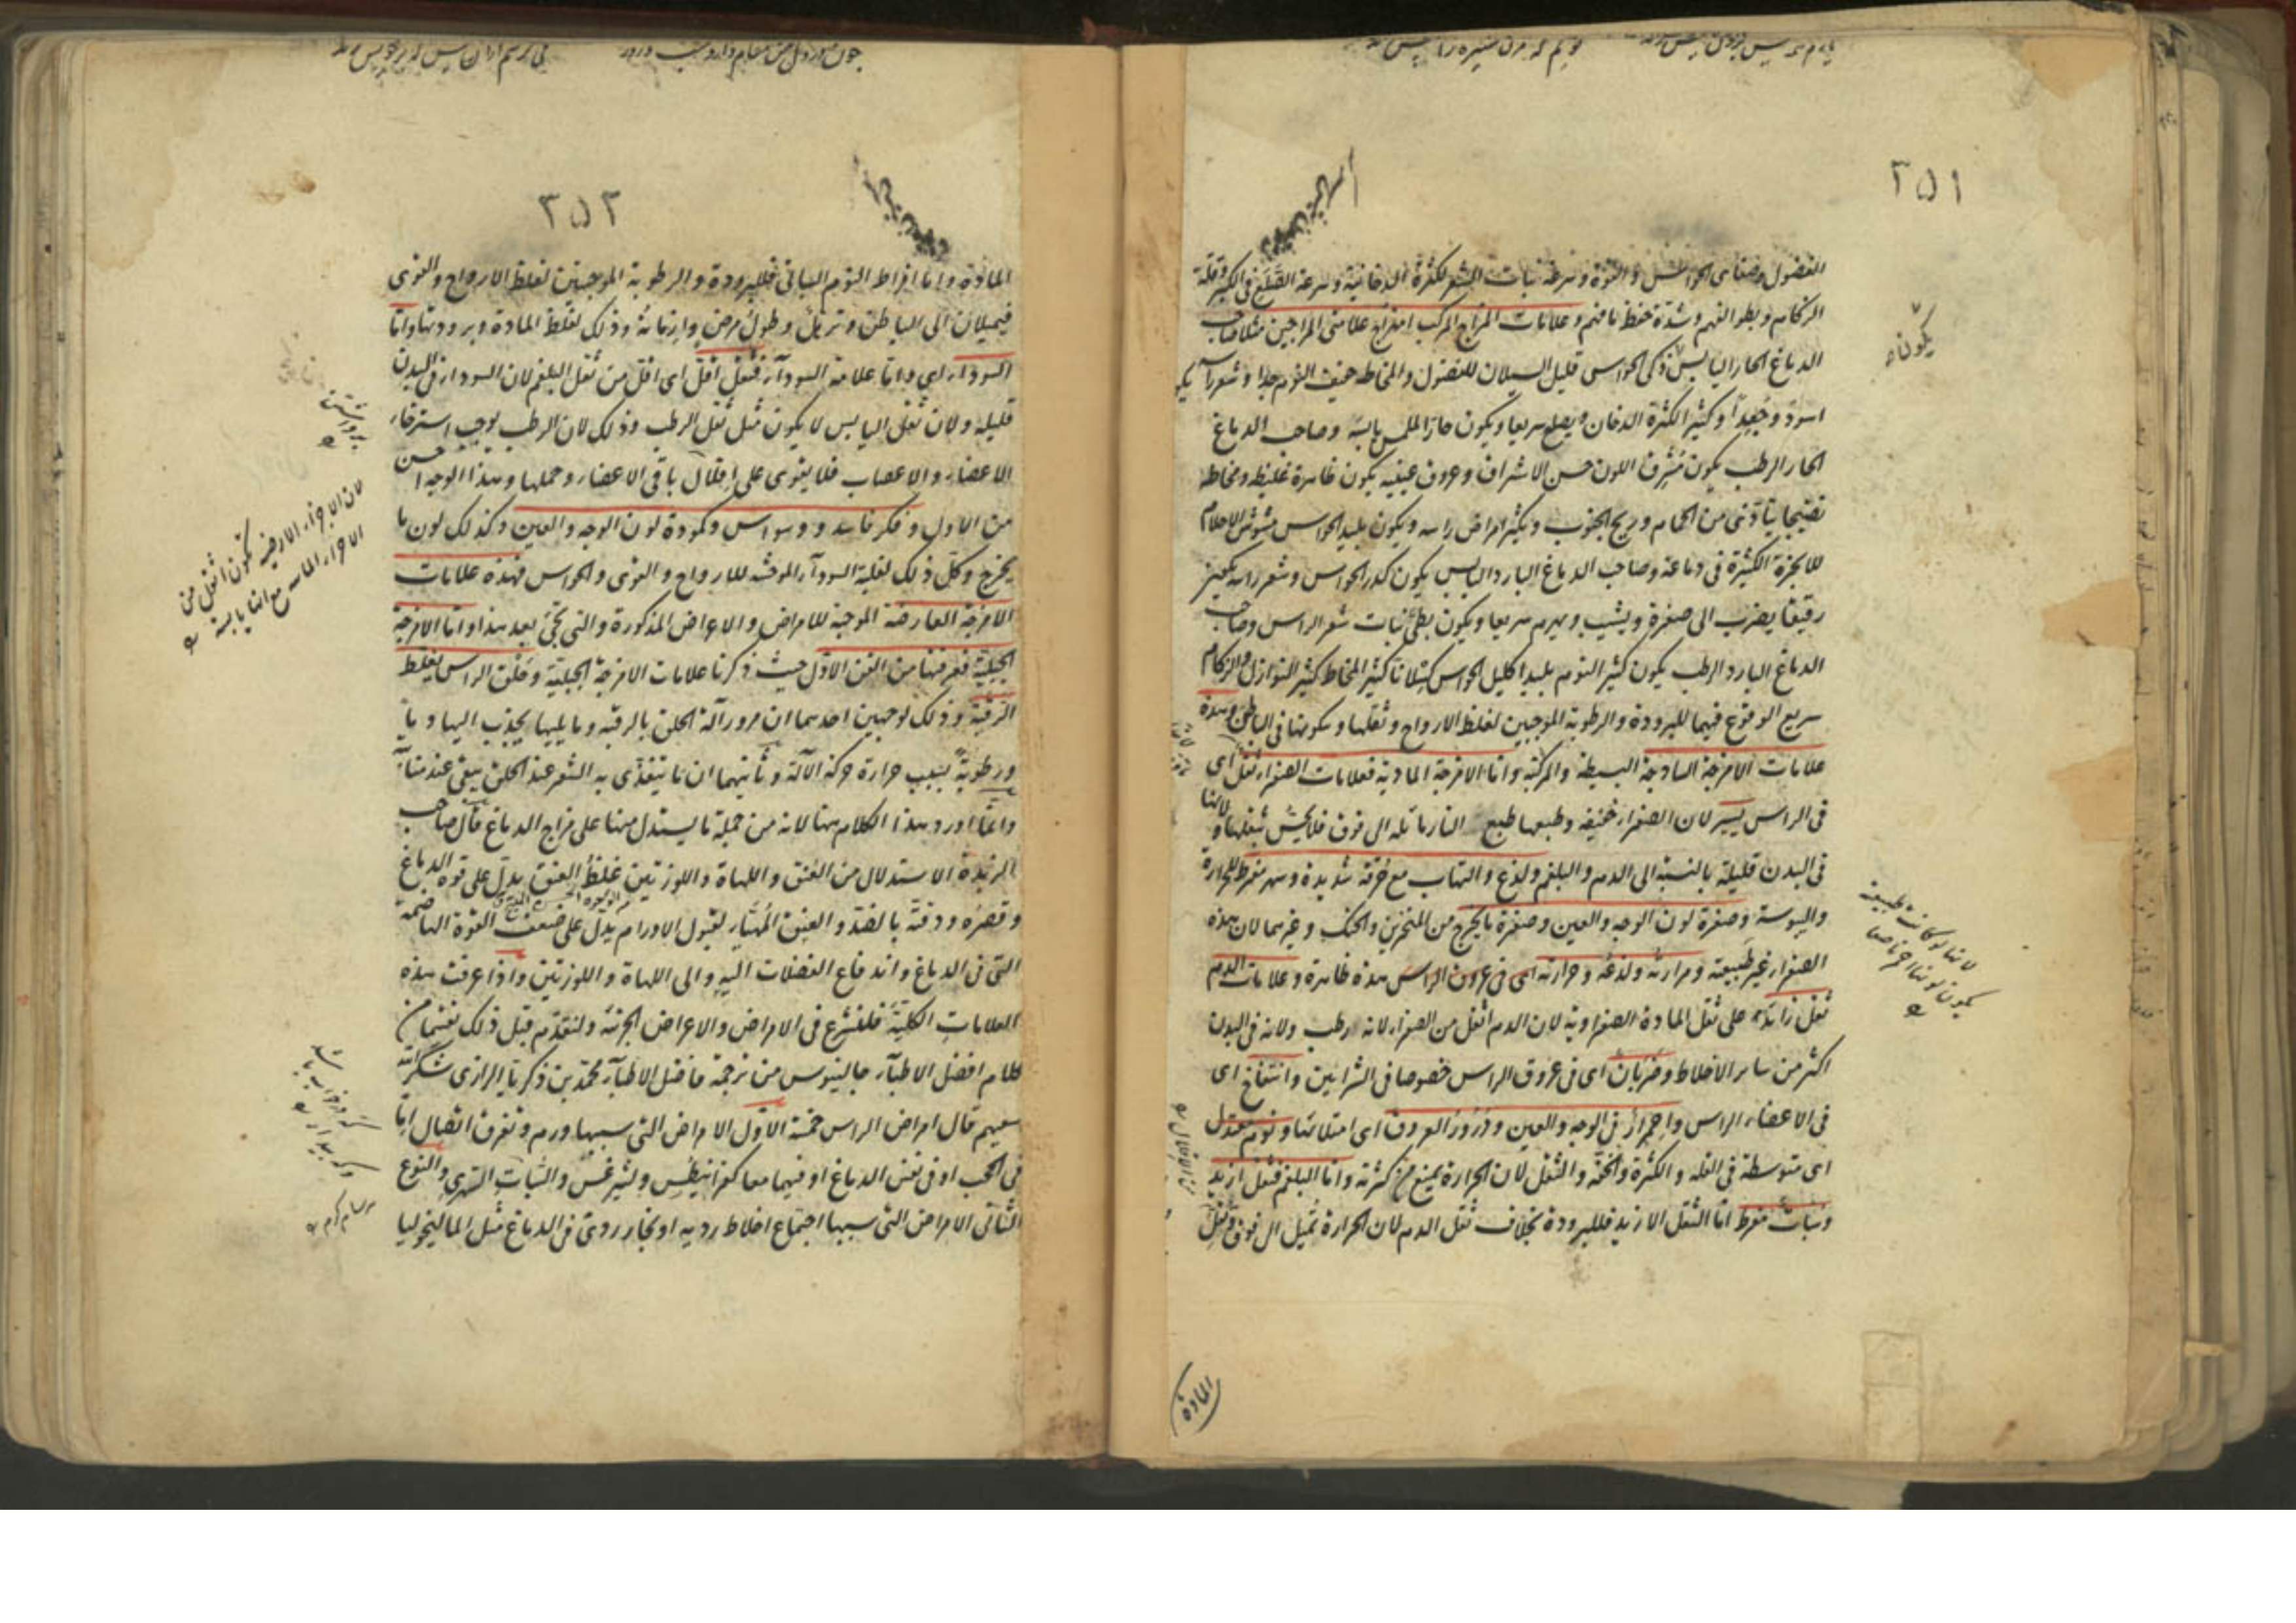 ٢٥١
الفضول وصفاء الحواس والقوة وسرعة نبات الشعر لكثرة الدخانية وسرعة الصلع فى الكبر وقلة
الزكام وبطو الفهم وشدة حفظ ما فهم وعلامات المزاج المركب امتزاج علامتى المزاجين مثلا صاحب
الدماغ الحار اليابس ذكى الحواس قليل السيلان للفضول والمخاط خفيف النوم جدا وشعر رأسه
اسود وجعدا وكثير الكثرة الدخان ويصلع سريعا ويكون حار الملمس يابسه وصاحب الدماغ
الحار الرطب يكون مشرق اللون حسن الاشراق وعروق عينيه يكون ظاهرة غليظة ومخاطه
نضيجا يتأذى من الحمام وريح الجنوب ويكثر امراض راسه ويكون بليد الحواس مشوش الاحلام
للابخرة الكثيرة فى دماغه وصاحب الدماغ البارد اليابس يكون كدر الحواس وشعر راسه يكون
رقيقا يضرب الى صفرة ويشيب ويهرم سريعا ويكون بطئ نبات شعر الراس وصاحب
الدماغ البارد الرطب يكون كثير النوم بليدا كليل الحواس كسلانا كثير المخاط كثير النوازل والزكام
سريع الوقوع فيهما للبرودة والرطوبة الموجبين لغلظ الارواح وثقلها وسكونها فى الباطن وهذه
علامات الامزجة الساذجة البسيطة والمركبة واما الامزجة المادية فعلامات الصفراء ثقل اى
فى الراس يسير لان الصفراء خفيفة وطبعها طبع النار مائلة الى فوق فلا يحس بثقلها ولانها
فى البدن قليلة بالنسبة الى الدم والبلغم ولذع والتهاب مع حرقة شديدة وسهر مفرط للحرارة
واليبوسة وصفرة لون الوجه والعين وصفرة ما يخرج من المنخرين والحنك وغيرهما لان هذه
الصفراء غير طبيعية ومرارته ولذعه وحرارته اى فى عروق الراس هذه ظاهرة وعلامات الدم
ثقل زائد على ثقل المادة الصفراوية لان الدم اثقل من الصفراء لانه ارطب ولانه فى البدن
اكثر من سائر الاخلاط وضربان اى فى عروق الراس خصوصا فى الشرايين وانتفاخ اى
فى الاعضاء الراس واحمرار فى الوجه والعين ودرور العروق اى امتلائها ونوم معتدل
اى متوسطة فى القلة والكثرة والخفة والثقل لان الحرارة يمنع من كثرته واما البلغم فثقل ازيد
وسبات مفرط اما الثقل الازيد فللبرودة بخلاف ثقل الدم لان الحرارة تميل الى فوق
يكون
لانها لو كانت طبيعية
يكون لونها احمر ناصعا
المادة
٢٥٢
المادة واما افراط النوم السباتى فللبرودة والرطوبة الموجبتين لغلظ الارواح والقوى
فيميلان الى الباطن وترهل وطول مرض وازمانه وذلك لغلظ المادة وبرودتها واما
السوداء اى واما علامة السوداء فثقل اقل اى اقل من ثقل البلغم لان السوداء فى البدن
قليلة ولان ثقل اليابس لا يكون مثل ثقل الرطب وذلك لان الرطب يوجب استرخاء
الاعضاء والاعصاب فلا يقوى على اقلال باقى الاعضاء وحملها وهذا الوجه احسن
من الاول وفكر فاسد ووسواس وكمودة لون الوجه والعين وكذلك لون ما
يخرج وكل ذلك لغلبة السوداء الموحشة للارواح والقوى والحواس فهذه علامات
الامزجة العارضة الموجبة للامراض والاعراض المذكورة والتى تجئ بعد هذا واما الامزجة
الجبلية فعرفتها من الفن الاول حيث ذكرنا علامات الامزجة الجبلية وحلق الراس يغلظ
الرقبة وذلك لوجهين احدهما ان مرور آلة الحلق بالرقبة وما يليها يجذب اليها دما
ورطوبة بسبب حرارة حركة الآلة وثانيهما ان ما يتغذى به الشعر عند الحلق يبقى عند منشأه
وانما اورد هذا الكلام هنا لانه من جملة ما يستدل منها على مزاج الدماغ قال صاحب
الزبدة الاستدلال من العنق واللهاة واللوزتين غلظ العنق يدل على قوة الدماغ
وقصره ودقته بالضد والعنق المهيأ لقبول الاورام يدل على ضعف القوة الهاضمة
التى فى الدماغ واندفاع الفضلات اليه والى اللهاة واللوزتين واذا عرفت هذه
العلامات الكلية فلنشرع فى الامراض والاعراض الجزئية ولنقدم قبل ذلك تقسيما من
كلام افضل الاطباء جالينوس من ترجمة فاضل الاطباء محمد بن زكريا الرازى شكر الله
سعيهم قال امراض الراس خمسة الاول الامراض التى سببها ورم وتفرق اتصال اما
فى الحجب او فى نفس الدماغ او فيهما معا كفرانيطس وليثرغس والسبات السهرى والنوع
الثانى الامراض التى سببها اجتماع اخلاط ردية او بخار ردى فى الدماغ مثل الماليخوليا
لان الاجزاء الارضية تكون اثقل من
الاجزاء المائية مع انها يابسة